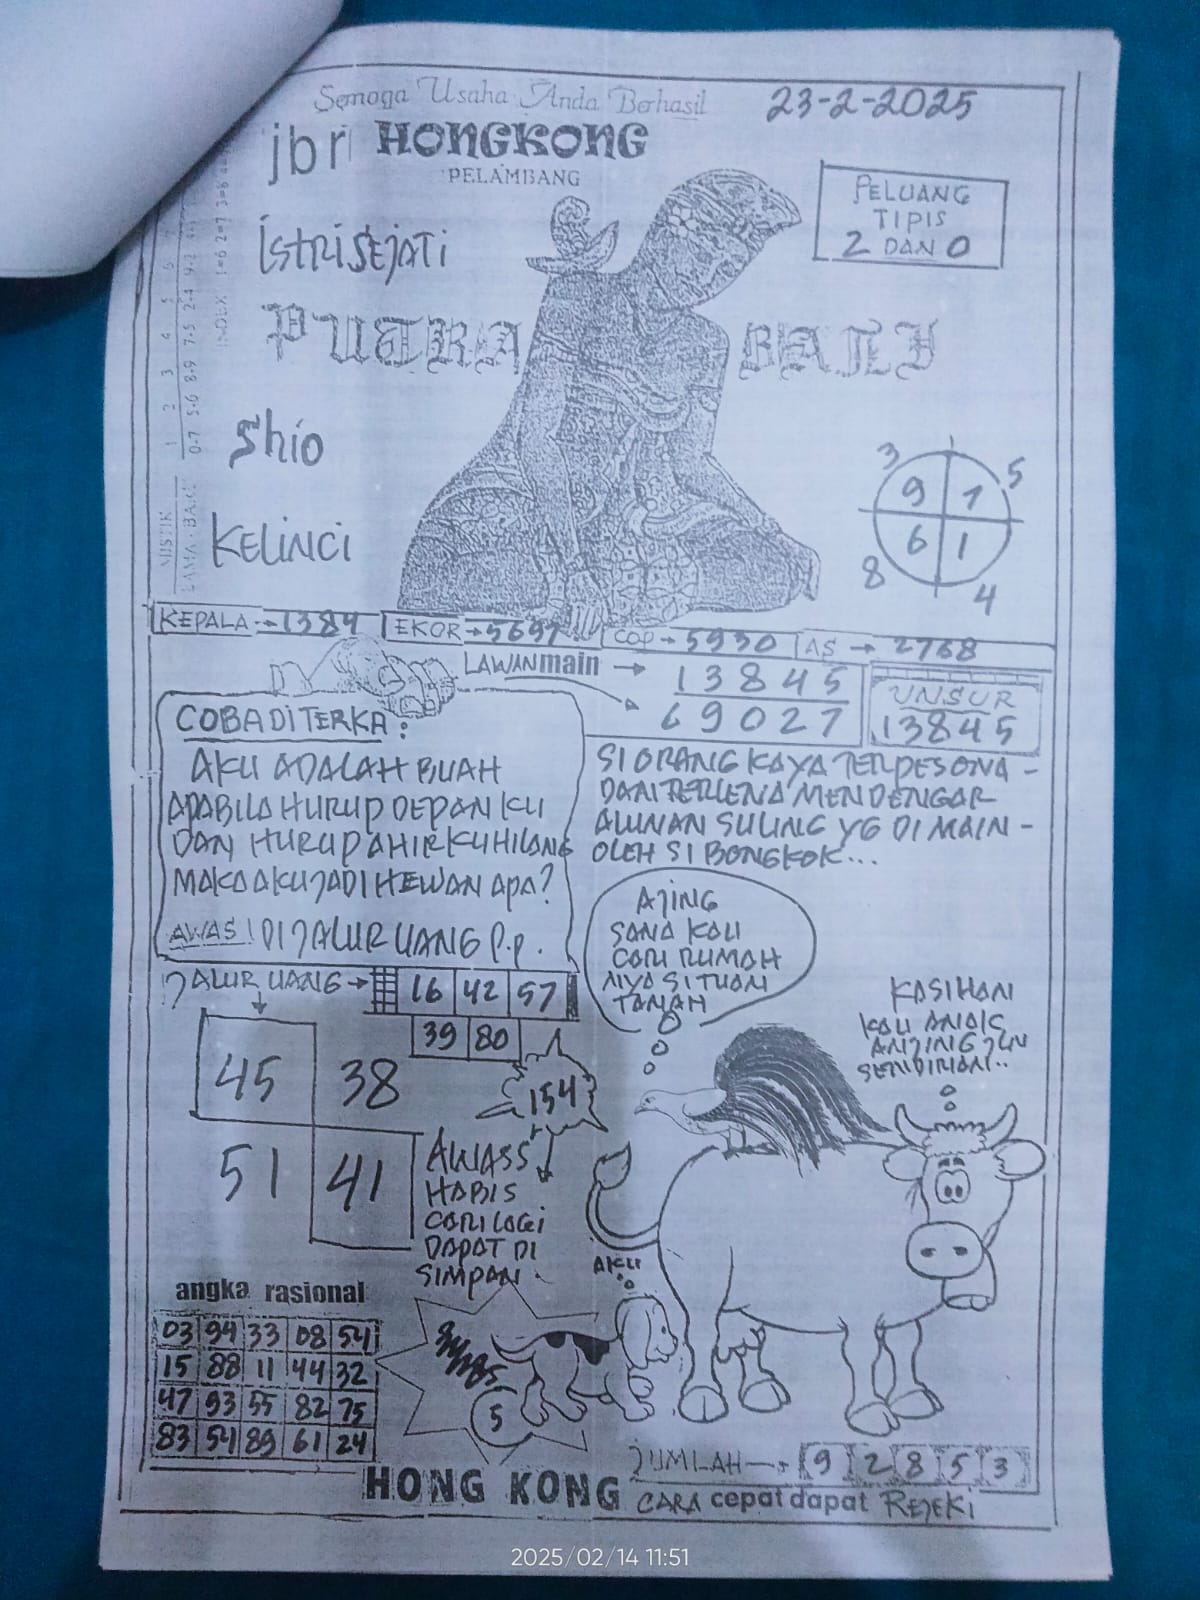 Semoga Usaha Anda Berhasil
23-2-2025
jbr HONGKONG
PELAMBANG
PELUANG
TIPIS
2 DAN 0
istrisejati
PUTRA BALI
shio
KELINCI
MISTIK
LAMA - BARU
1 2 3 4 5 6
0-7 5-6 8-9 7-5 2-4 9-2
INDEX 1=6 2=7 3=8
3 5
9 7
6 1
8 4
KEPALA → 1384
EKOR → 5697
COP → 5930
AS → 2768
LAWAN main → 13845
69027
UNSUR
13845
COBA DI TERKA :
AKU ADALAH BUAH
APABILA HURUP DEPAN KU
DAN HURUP AHIR KU HILANG
MAKA AKU JADI HEWAN APA?
AWAS! DI JALUR UANG P.P.
SI ORANG KAYA TERPESONA -
DAN TERLENA MENDENGAR
ALUNAN SULING YG DI MAIN -
OLEH SI BONGKOK...
JALUR UANG → 16 42 57
39 80
45 38
51 41
154
AWASS
HABIS
CARI LAGI
DAPAT DI
SIMPAN
AJING
SANA KAU
CARI RUMAH
NYA SI TUAN
TANAH
KASIHAN
KAU ANAK
ANJING JUN
SENDIRIAN..
AKU
angka rasional
03 94 33 08 54
15 88 11 44 32
47 93 55 82 75
83 54 89 61 24
5
JUMLAH → 9 2 8 5 3
HONG KONG CARA cepat dapat REJEKI
2025/02/14 11:51